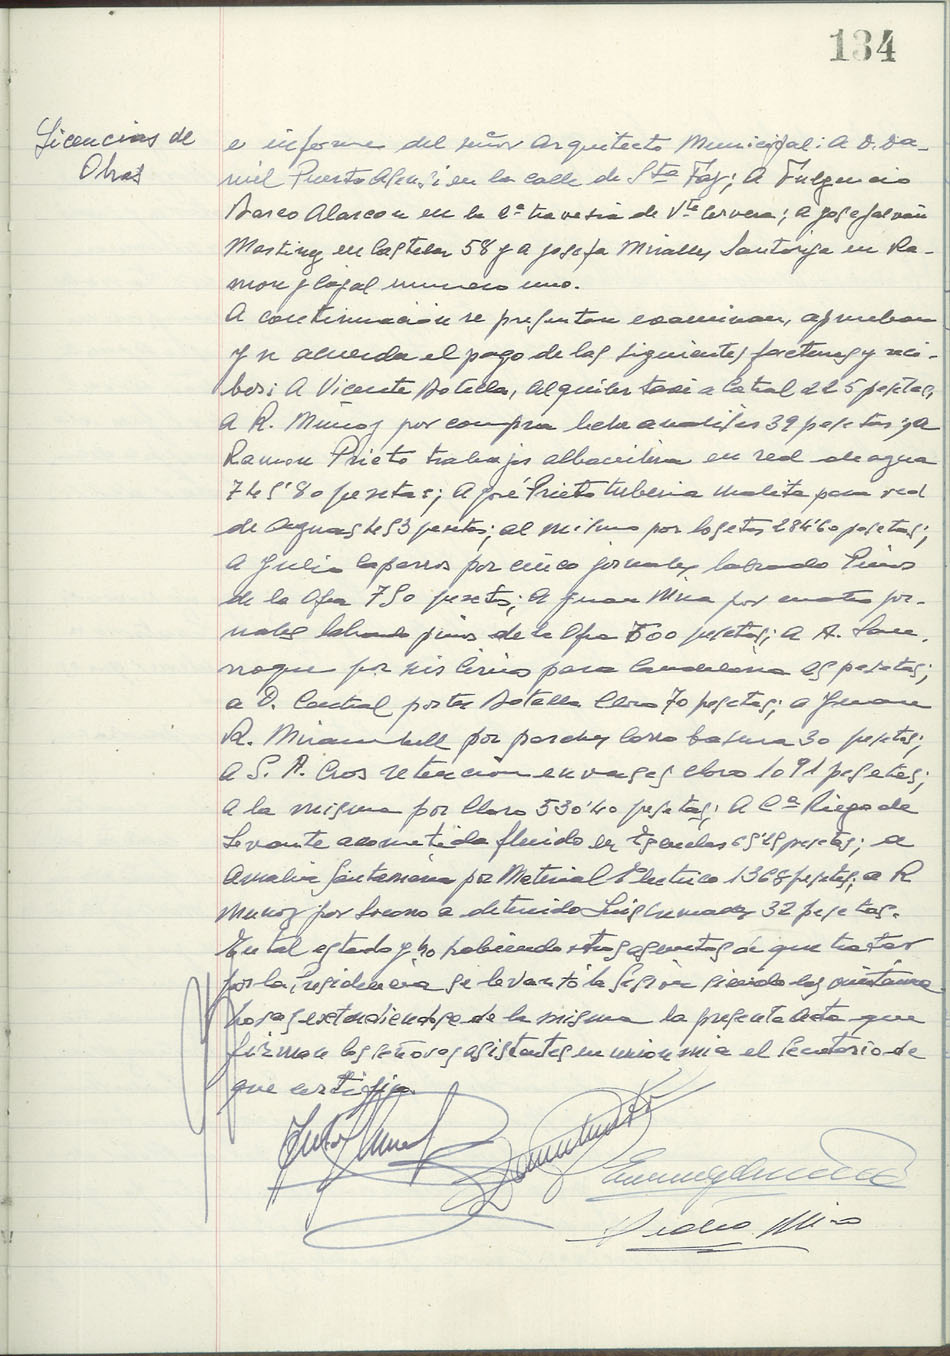 134
Licencias de
Obras
e informe del señor Arquitecto Municipal: A D. Da-
niel Puerto Asensi en la calle de Sta Faz; A Fulgencio
Barco Alarcon en la 2ª travesia de Vte Cervera; a Jose Galvañ
Martinez en Castelar 58 y a Josefa Miralles Santonja en Ra-
mon y Cajal numero uno.
A continuación se presentan examinan, aprueban
y se acuerda el pago de las siguientes facturas y reci-
bos: A Vicente Botella, alquiler taxi a 225 pesetas,
a R. Muñoz por compra leche analisis 39 pesetas; a
Ramon Prieto trabajos albañileria en red de agua
745'80 pesetas; A José Prieto tuberia para red
de aguas 453 pesetas; al mismo por losetas 284'60 pesetas;
a Julio Caparros por cinco jornales labrando Pinos
de la Ofra 750 pesetas; A Juan Mira por cuatro jor-
nales labrando pinos de la Ofra 600 pesetas; a A. San-
roque por seis Cirios para Candelaria 25 pesetas;
a D. Central portes Botella Cloro 70 pesetas; a
R. Mirambell por carro basura 30 pesetas;
A S. A. Cros retención envases cloro 1091 pesetas;
A la misma por Cloro 530'40 pesetas; A Cª Riegos de
Levante acometida fluido en Escuelas pesetas; a
Amalia Santamaria por Material Electrico 1368 pesetas; a R
Munoz por Socorro a detenido Luis 32 pesetas.
En tal estado y no habiendo otros asuntos de que tratar
por la Presidencia se levantó la Sesión siendo las
horas extendiendose de la misma la presente Acta que
firman los señores asistentes en union mia el Secretario de
que certifico.
Pedro Mira